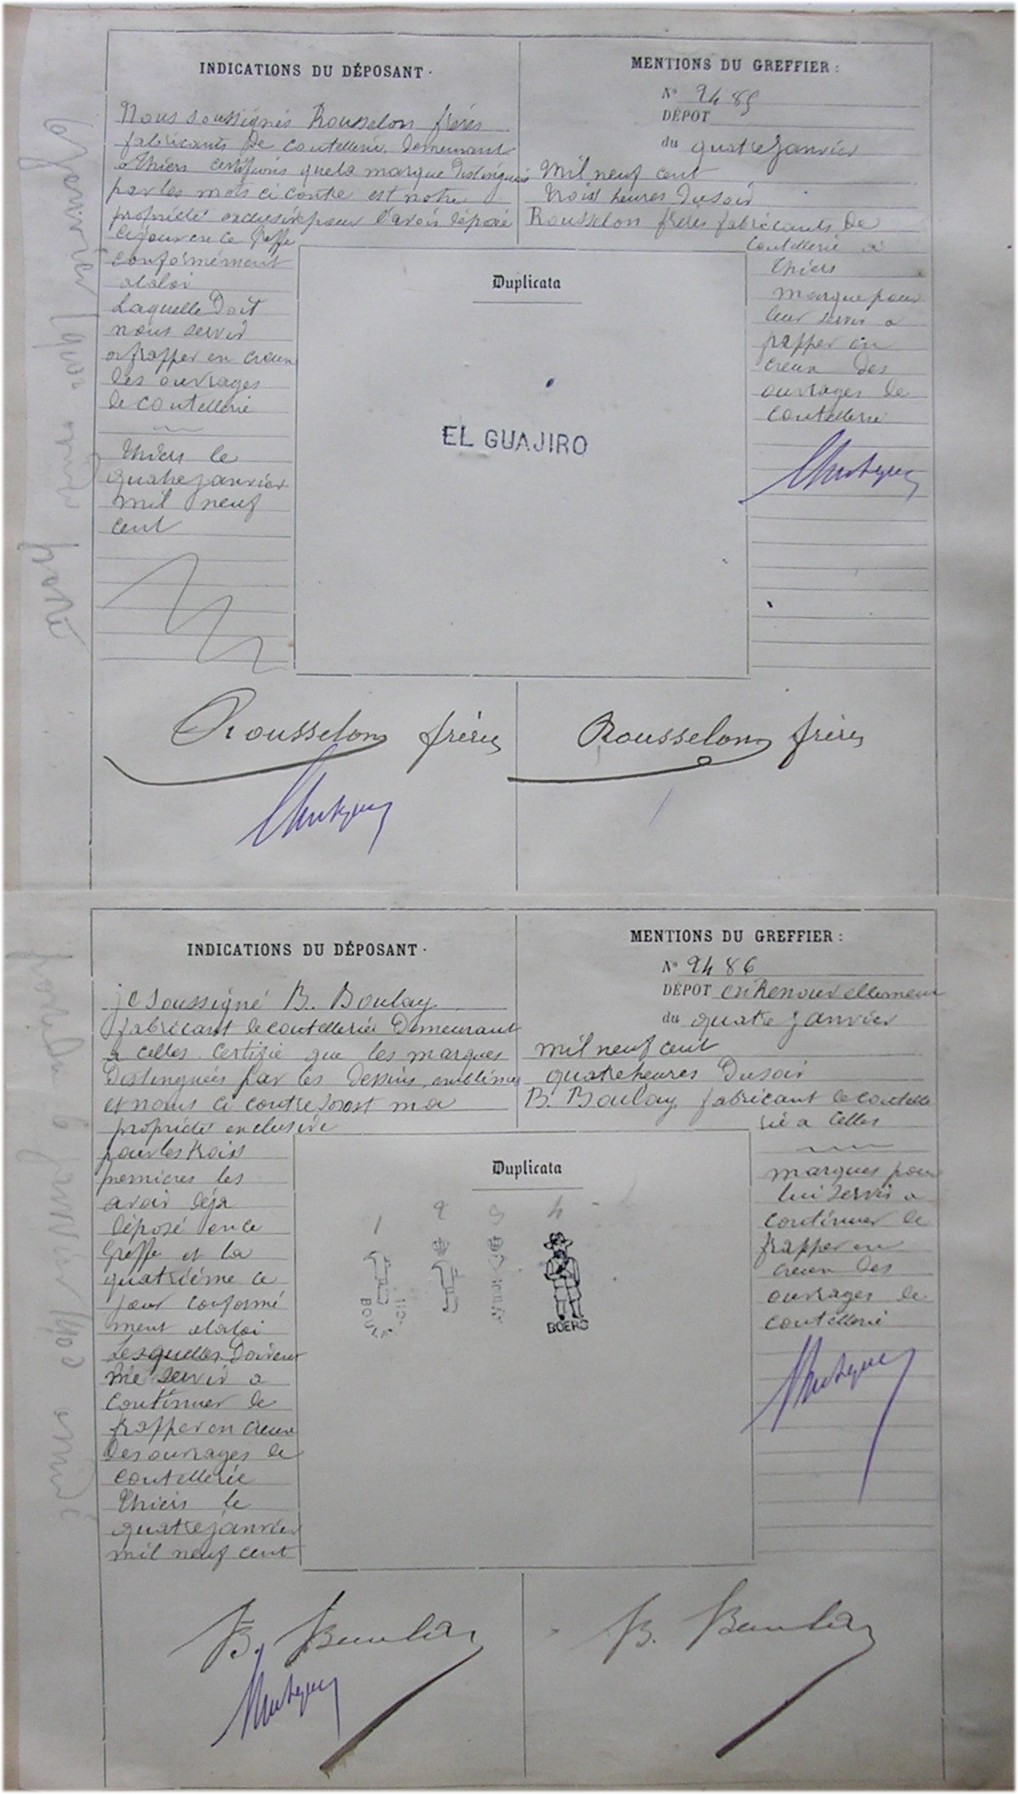 INDICATIONS DU DÉPOSANT
Nous soussignés Rousselon frères
fabricants de coutellerie demeurant
a Thiers certifions que la marque distinguée
par les mots ci contre est notre
propriété exclusive pour l'avoir déposé
ce jour en ce Greffe
conformément
a la loi
Laquelle Doit
nous servir
a frapper en creux
les ouvrages
de coutellerie
Thiers le
quatre janvier
mil neuf
cent
MENTIONS DU GREFFIER :
N° 2485
DÉPÔT
du quatre Janvier
Mil neuf cent
trois heures Dusoir
Rousselon frères fabricants De
Coutellerie a
Thiers
marque pour
leur servir a
frapper en
creux Des
ouvrages de
coutellerie
Duplicata
EL GUAJIRO
Rousselon frères
Rousselon frères
INDICATIONS DU DÉPOSANT
je soussigné B. Boulay
fabricant de coutellerie Demeurant
a Celles Certifie que les marques
Distinguées par les Dessins, emblèmes
et noms ci contre sont ma
propriété exclusive
pour les trois
premières les
avoir déjà
déposé en ce
Greffe et la
quatrième ce
jour conformé
ment a la loi
Lesquelles Doivent
me servir a
continuer de
frapper en creux
Des ouvrages de
coutellerie
Thiers le
quatre janvier
mil neuf cent
MENTIONS DU GREFFIER :
N° 2486
DÉPÔT en Renouvellement
du quatre Janvier
mil neuf cent
quatre heures Dusoir
B. Boulay fabricant de coutelle
rie a Celles
marques pour
lui servir a
continuer de
frapper en
creux Des
ouvrages de
coutellerie
Duplicata
1 2 3 4
BOERO
B. Boulay
B. Boulay